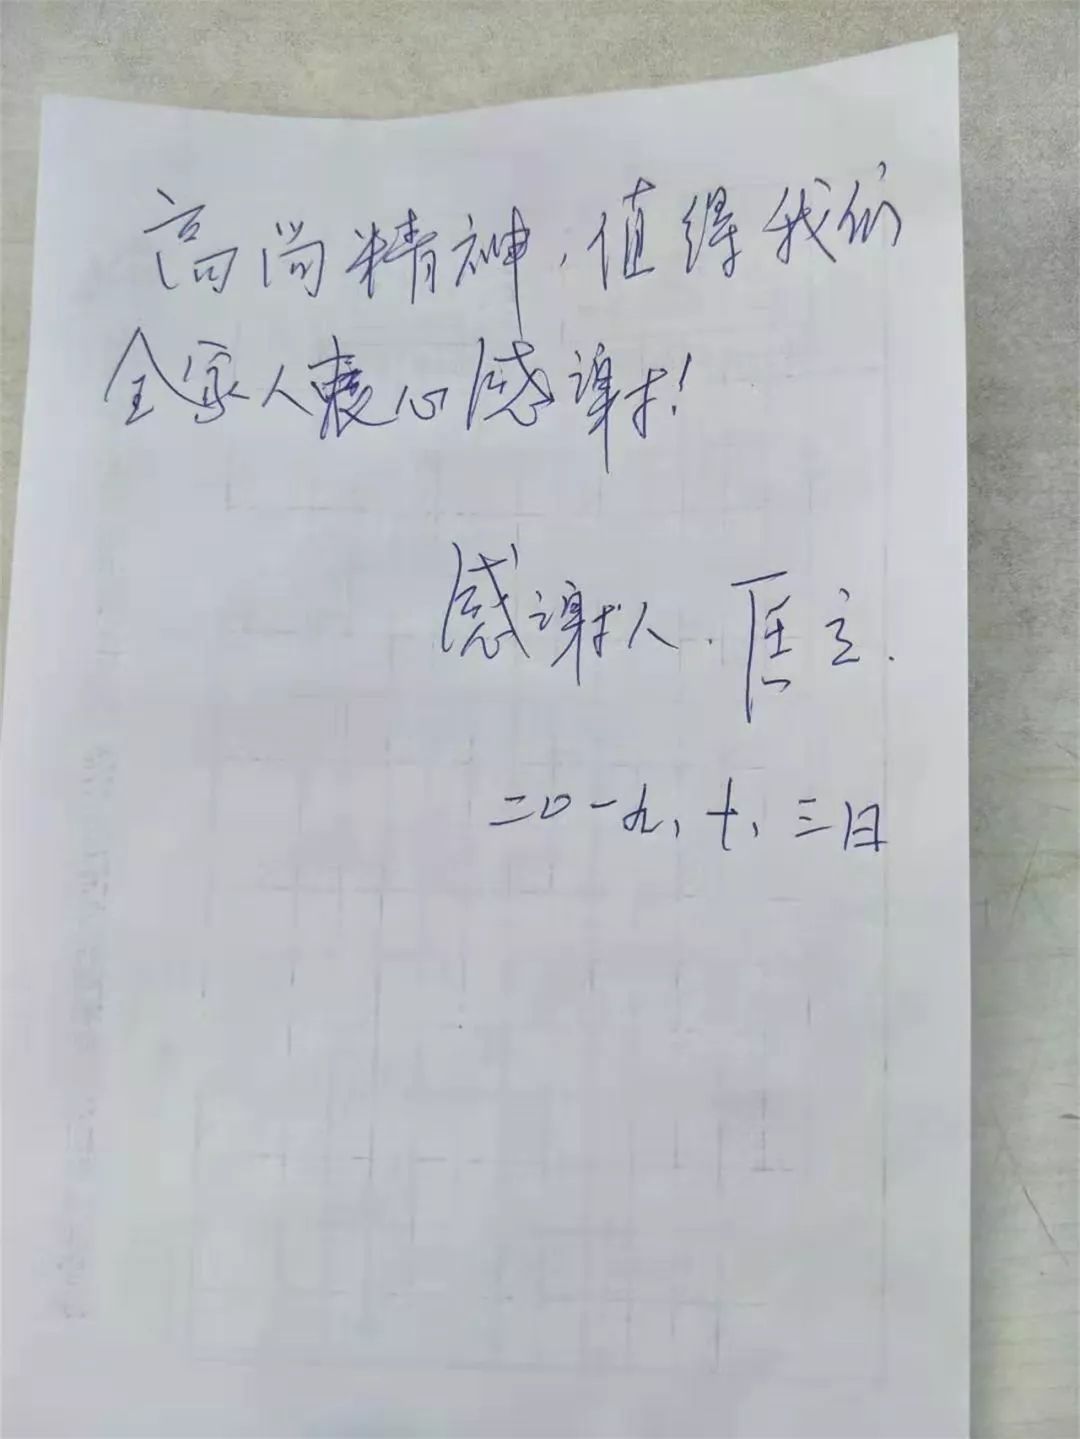 高尚精神，值得我们
全家人衷心感谢！
感谢人.
二〇一九、十、三日